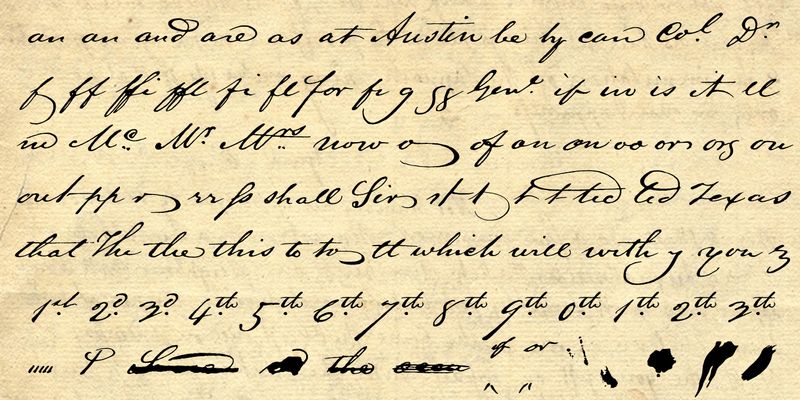 an an and are as at Austin be by can Col. Dr
f ff ffi ffl fi fl for fr g gg Genl if in is it ll
m Mc. Mr. Mrs now o of an on oo or org ou
out pp r rr ss shall Sir st t t tt ted ted Texas
that The the this to to tt which will with y you z
1st 2d 3d 4th 5th 6th 7th 8th 9th 0th 1th 2th 3th
P the of or